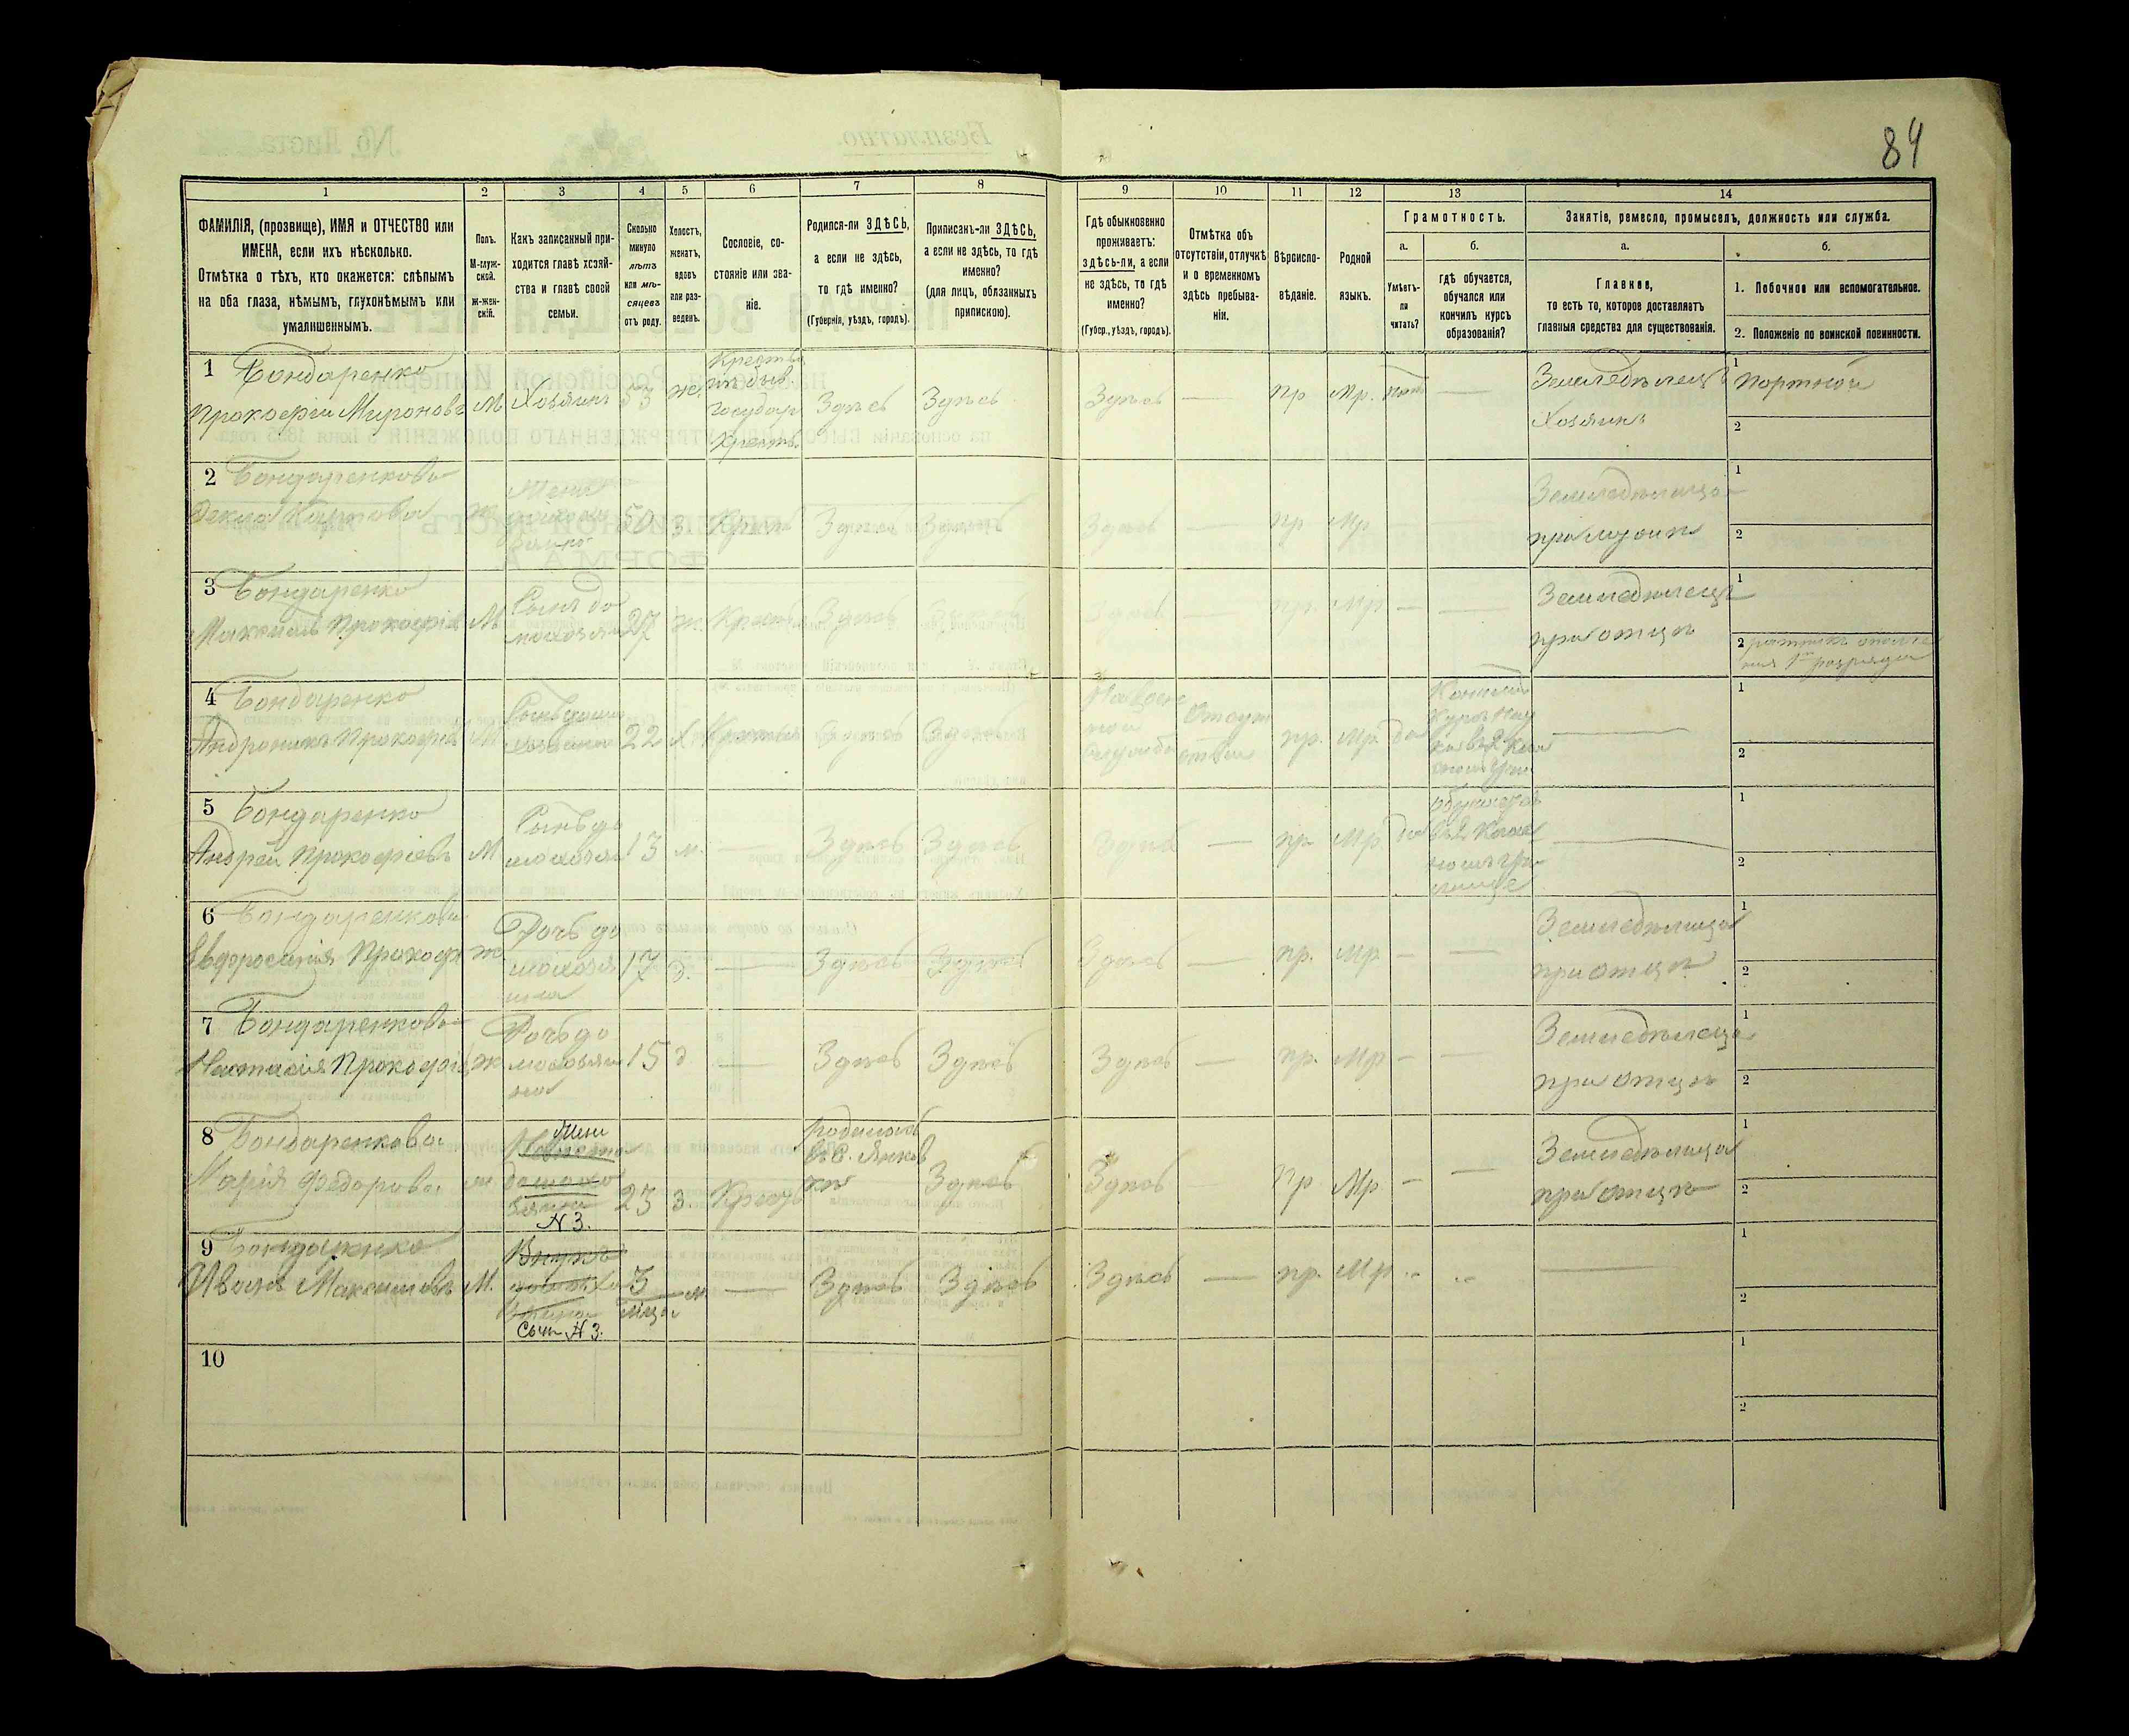 84
1
2
3
4
5
6
7
8
9
10
11
12
13
14
ФАМИЛІЯ, (прозвище), ИМЯ и ОТЧЕСТВО или
ИМЕНА, если ихъ нѣсколько.
Отмѣтка о тѣхъ, кто окажется: слѣпымъ
на оба глаза, нѣмымъ, глухонѣмымъ или
умалишеннымъ.
Полъ.
М-муж-
ской.
Ж-жен-
скій.
Какъ записанный при-
ходится главѣ хозяй-
ства и главѣ своей
семьи.
Сколько
минуло
лѣтъ
или мѣ-
сяцевъ
отъ роду.
Холостъ,
женатъ,
вдовъ
или раз-
веденъ.
Сословіе, со-
стояніе или зва-
ніе.
Родился-ли ЗДѢСЬ,
а если не здѣсь,
то гдѣ именно?
(Губернія, уѣздъ, городъ).
Приписанъ-ли ЗДѢСЬ,
а если не здѣсь, то гдѣ
именно?
(для лицъ, обязанныхъ
припискою).
Гдѣ обыкновенно
проживаетъ:
здѣсь-ли, а если
не здѣсь, то гдѣ
именно?
(Губер., уѣздъ, городъ).
Отмѣтка объ
отсутствіи, отлучкѣ
и о временномъ
здѣсь пребыва-
ніи.
Вѣроиспо-
вѣданіе.
Родной
языкъ.
Грамотность.
а.
Умѣетъ-
ли
читать?
б.
гдѣ обучается,
обучался или
кончилъ курсъ
образованія?
Занятіе, ремесло, промыселъ, должность или служба.
а.
Главное,
то есть то, которое доставляетъ
главныя средства для существованія.
б.
1. Побочное или вспомогательное.
2. Положеніе по воинской повинности.
1 Бондаренко
Прокофій Мироновъ М Хозяинъ 53 же.
Крестья
изъ быв
Государ
Крестья
Здѣсь Здѣсь Здѣсь — пр Мр. нѣтъ —
Земледѣлецъ
Хозяинъ
1 Портной
2
2 Бондаренкова
Фекла Карпова ж
Жена
50 з. Крест Здѣсь Здѣсь Здѣсь — пр Мр
Земледѣлица
при мужѣ
1
2
3 Бондаренко
Максимъ Прокофіев М
Сынъ до
мохозяи
27 ж. Крест Здѣсь Здѣсь Здѣсь — пр. Мр — —
Земледѣлецъ
при отцѣ
1
2 ратникъ ополче
нія 1 разряда
4 Бондаренко
Андроникъ Прокофіев М
Сынъ домо
хозяина
22 х. Крестья Здѣсь Здѣсь
На воен
ной
службѣ
Отсут
ствіи
пр. Мр. да
—
1
2
5 Бондаренко
Андрей Прокофіевъ М
Сынъ до
мохозяи
13 м. — Здѣсь Здѣсь Здѣсь — пр Мр да
обучается
—
1
2
6 Бондаренкова
Евфросинія Прокофі ж.
Дочь до
мохозя
ина
17 д. — Здѣсь Здѣсь Здѣсь — пр. Мр — —
Земледѣлица
при отцѣ
1
2
7 Бондаренкова
Настасія Прокофіе ж
Дочь до
мохозяи
на
15 д — Здѣсь Здѣсь Здѣсь — пр. Мр — —
Земледѣлица
при отцѣ
1
2
8 Бондаренкова
Марія Федорова
Жена
Невѣстка
домохо
зяина
N 3.
23 з. Крест
родилась
въ с. Янков
кѣ
Здѣсь Здѣсь — пр Мр — —
Земледѣлица
при отцѣ
1
2
9 Бондаренко
Иванъ Максимовъ М.
Внукъ
Сынъ N 3.
3
мѣца
м — Здѣсь Здѣсь Здѣсь — пр. Мр —
1
2
10
1
2